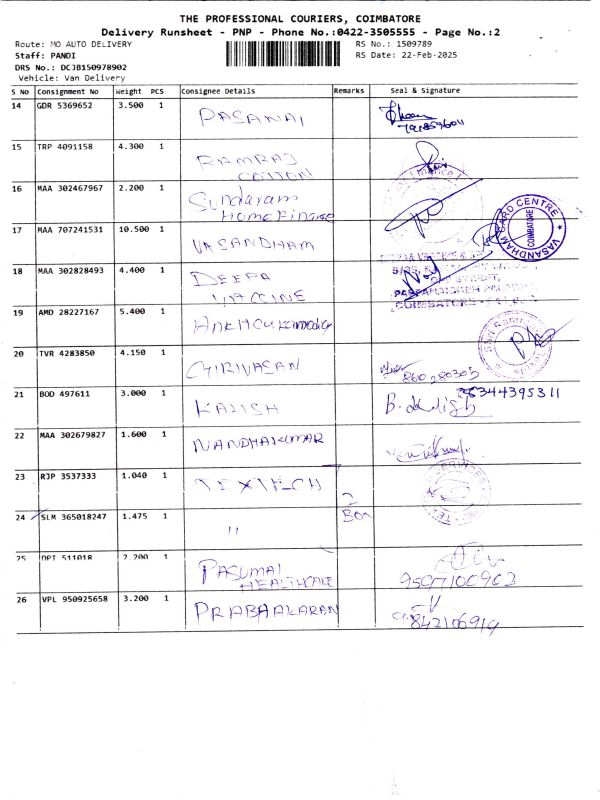 THE PROFESSIONAL COURIERS, COIMBATORE
Delivery Runsheet - PNP - Phone No.:0422-3505555 - Page No.:2
Route: MO AUTO DELIVERY RS No.: 1509789
Staff: PANDI RS Date: 22-Feb-2025
DRS No.: DCJB150978902
Vehicle: Van Delivery
S No Consignment No Weight PCS Consignee Details Remarks Seal & Signature
14 GDR 5369652 3.500 1 PASANAI
15 TRP 4091158 4.300 1 RAMRAJ
COTTON
16 MAA 302467967 2.200 1 Sundaram
Home Finance
17 MAA 707241531 10.500 1 VASANDHAM
VASANDHAM CARD CENTRE
COIMBATORE
18 MAA 302828493 4.400 1 DEEPA
VACCINE
19 AMD 28227167 5.400 1
20 TVR 4283850 4.150 1 GIRIVASAN
21 BOD 497611 3.000 1 KALISH
22 MAA 302679827 1.600 1 NANDHAKUMAR
23 RJP 3537333 1.040 1 TEXTECH
24 SLM 365018247 1.475 1 " Box
25 DPI 511018 2.200 1 PASUMAI
HEALTHCARE 9597100902
26 VPL 950925658 3.200 1 PRABAAKARAN
842106914